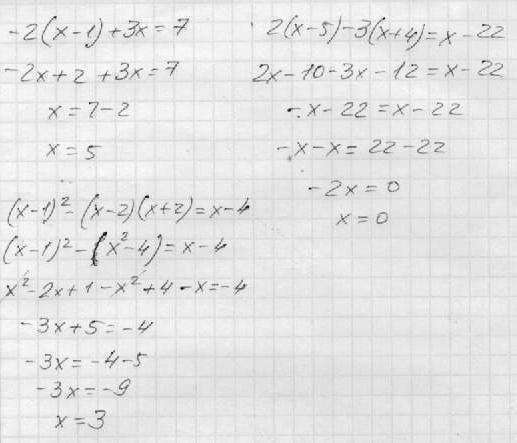 -2(x-1)+3x=7
-2x+2+3x=7
x=7-2
x=5
2(x-5)-3(x+4)=x-22
2x-10-3x-12=x-22
-x-22=x-22
-x-x=22-22
-2x=0
x=0
(x-1)²-(x-2)(x+2)=x-4
(x-1)²-(x²-4)=x-4
x²-2x+1-x²+4-x=-4
-3x+5=-4
-3x=-4-5
-3x=-9
x=3